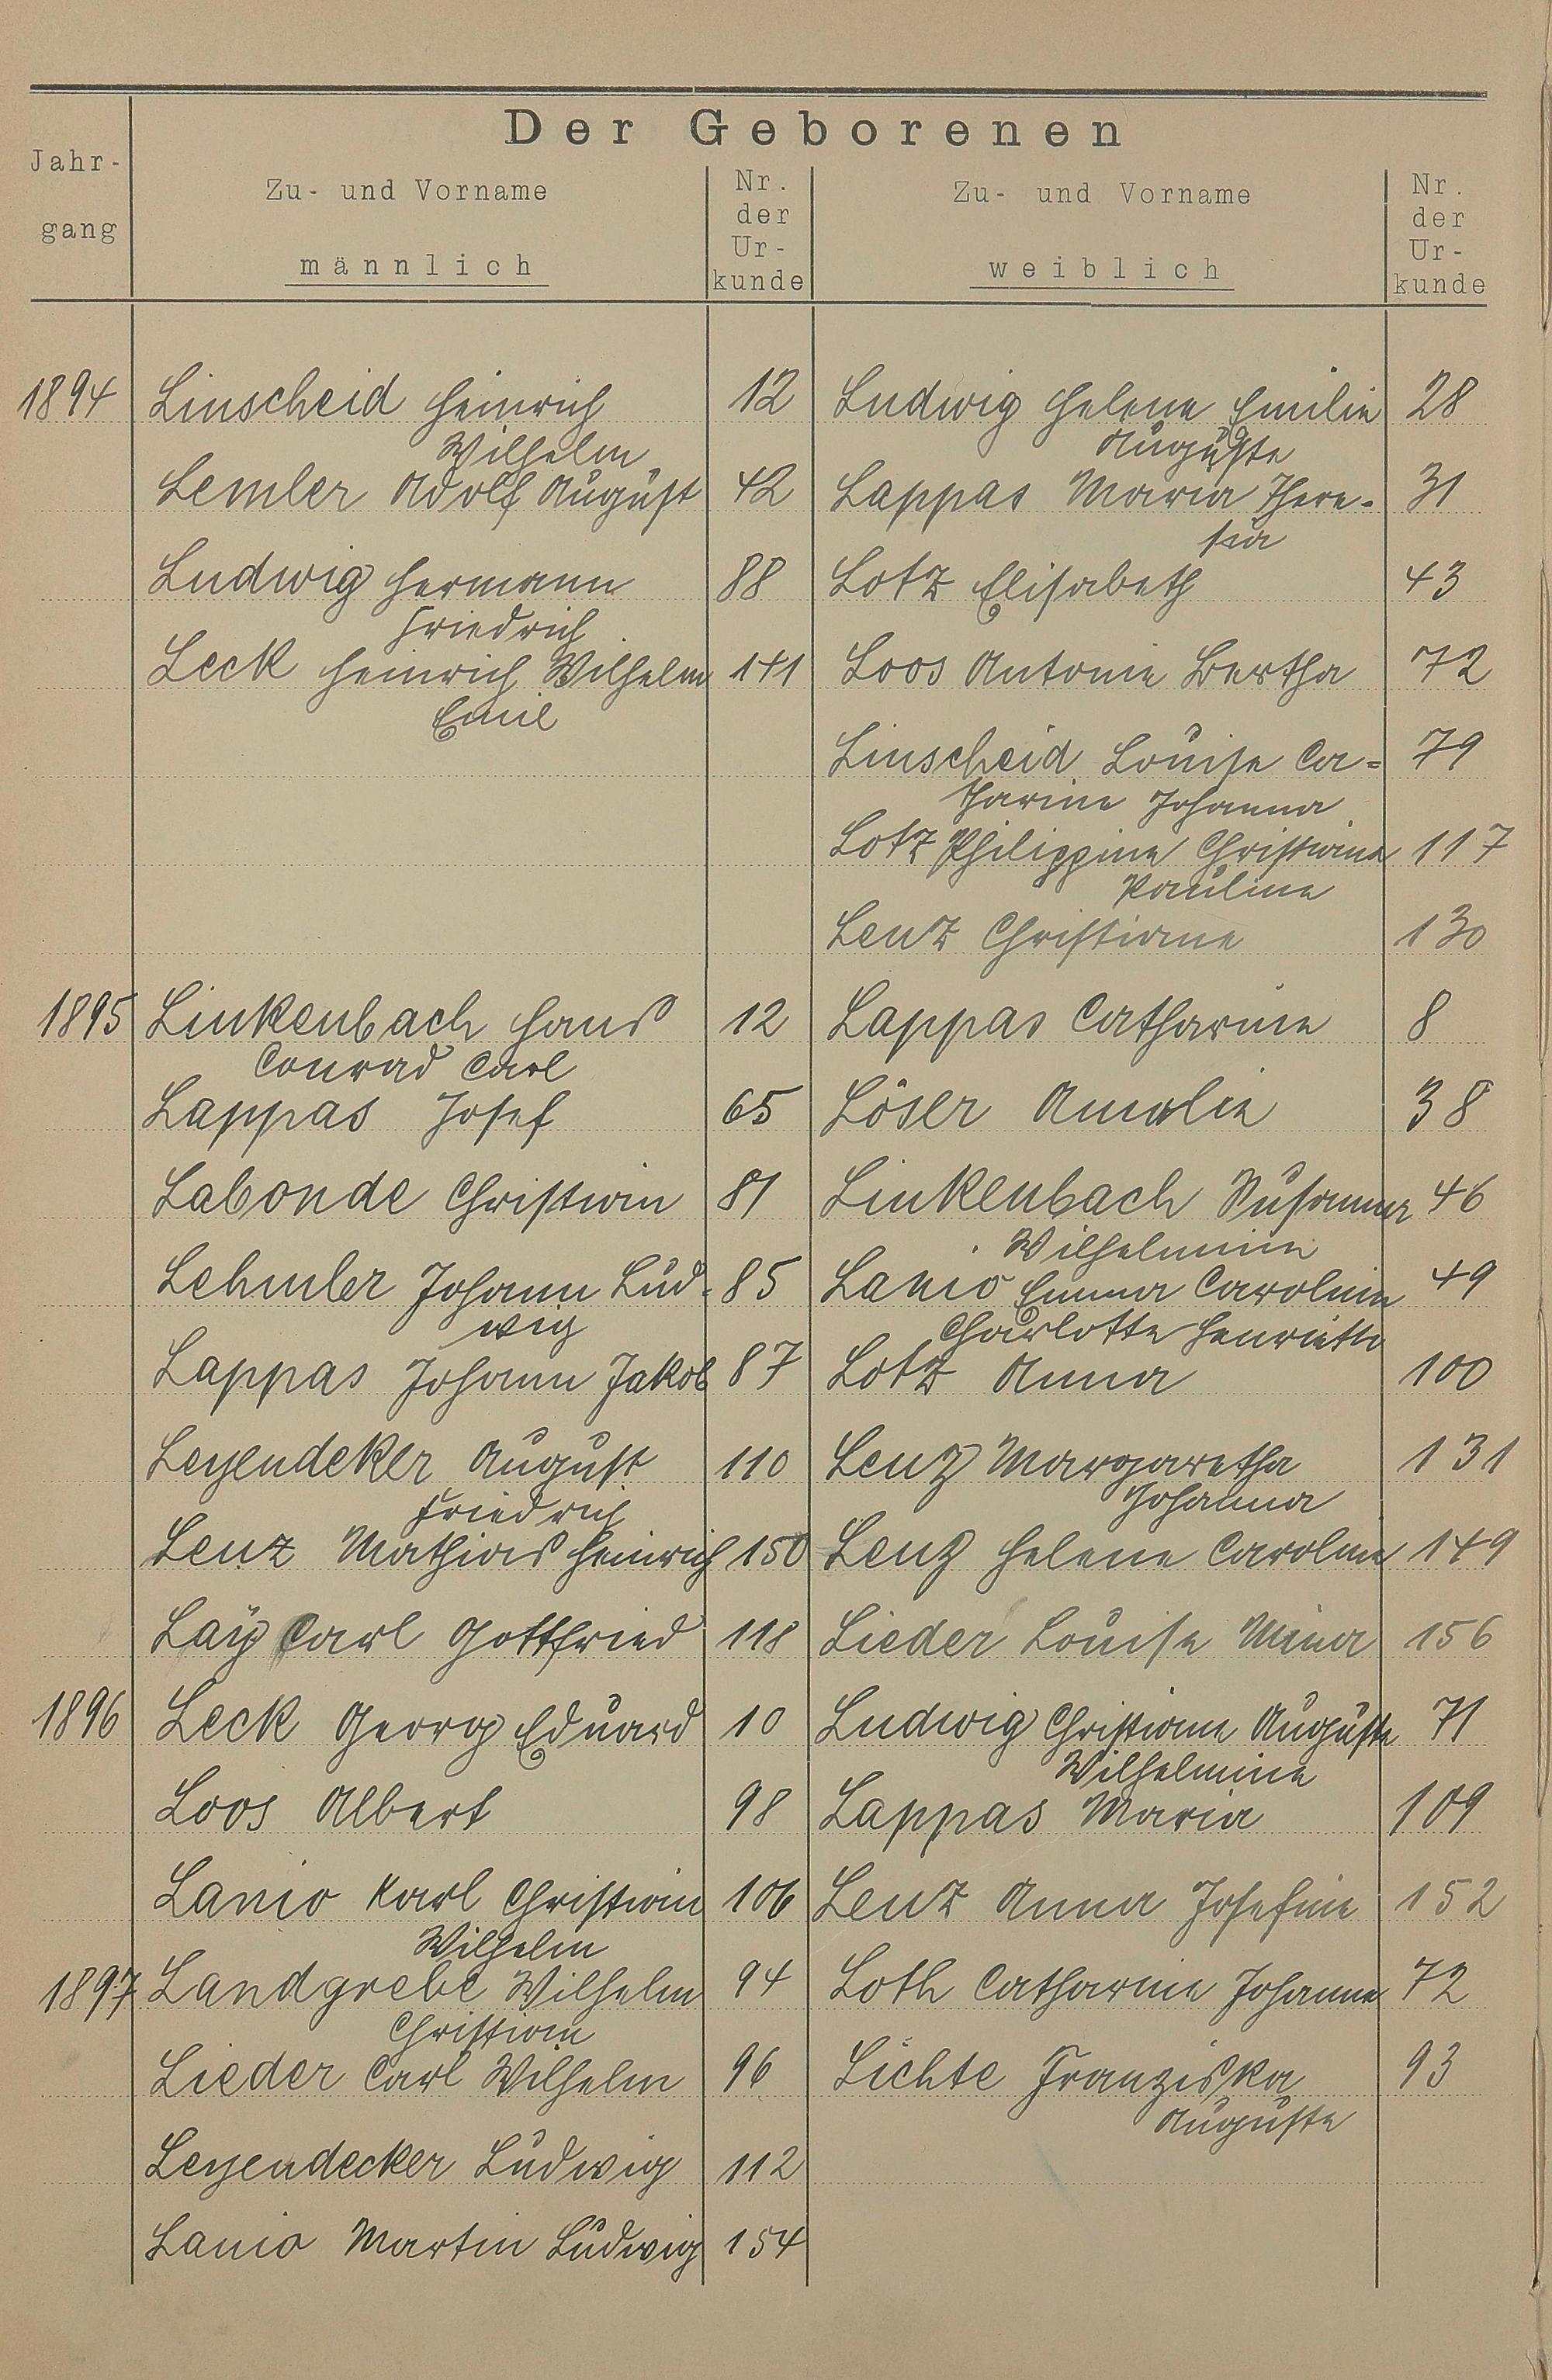 Der Geborenen
Jahr-
gang
Zu- und Vorname
männlich
Nr.
der
Ur-
kunde
Zu- und Vorname
weiblich
Nr.
der
Ur-
kunde
1894 Linscheid Heinrich 12 Ludwig Helene Emilie 28
Wilhelm Auguste
Lemler Adolf August 42 Lappas Maria There- 31
sia
Ludwig Hermann 88 Lotz Elisabeth 43
Friedrich
Leck Heinrich Wilhelm 141 Loos Antonie Bertha 72
Emil
Linscheid Louise Ca= 79
tharine Johanna
Lotz Philippine Christiane 117
Pauline
Lenz Christiane 130
1895 Linkenbach Hans 12 Lappas Catharine 8
Conrad Carl
Lappas Josef 65 Löser Amalie 38
Labonde Christian 81 Linkenbach Susanna 46
Wilhelmine
Lehmler Johann Lud- 85 Lanio Emma Caroline 49
wig Charlotte Henriette
Lappas Johann Jakob 87 Lotz Anna 100
Leyendeker August 110 Lenz Margaretha 131
Friedrich Johanna
Lenz Mathias Heinrich 150 Lenz Helene Caroline 149
Laÿ Carl Gottfried 118 Lieder Louise Mina 156
1896 Leck Georg Eduard 10 Ludwig Christiane Auguste 71
Wilhelmine
Loos Albert 98 Lappas Maria 109
Lanio Karl Christian 106 Lenz Anna Josefine 152
Wilhelm
1897 Landgrebe Wilhelm 94 Loth Catharine Johanna 72
Christian
Lieder Carl Wilhelm 96 Lichte Franziska 93
Auguste
Leyendecker Ludwig 112
Lanio Martin Ludwig 154